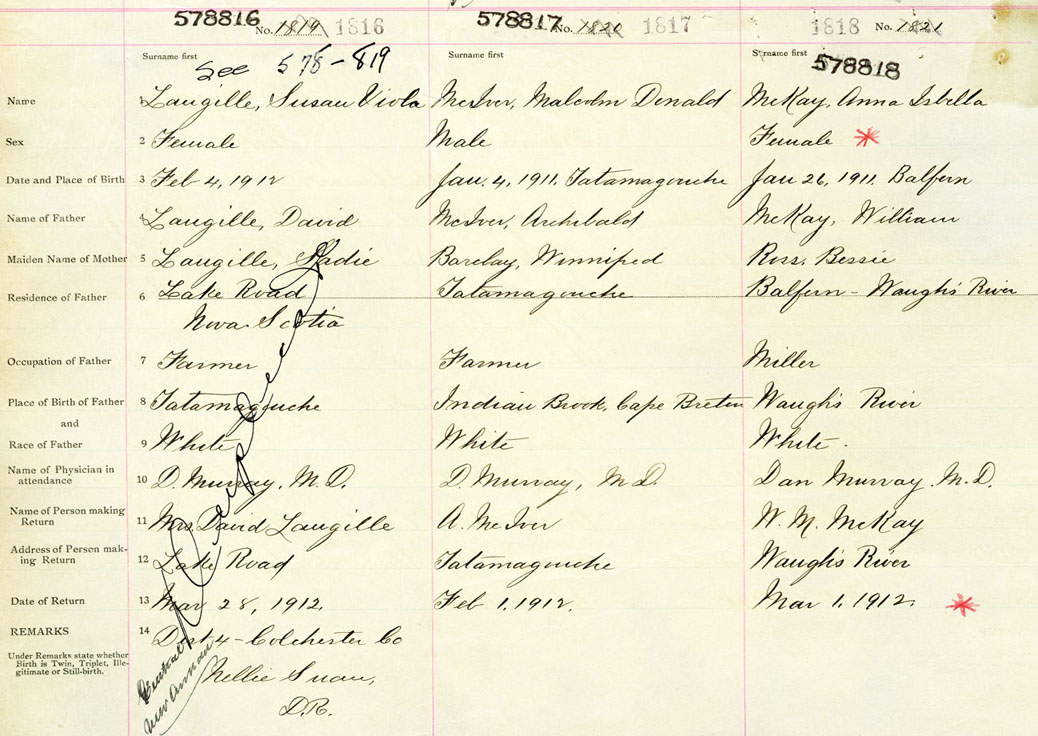 578816 No. 1819 1816 578817 No. 1820 1817 1818 No. 1821
Surname first Surname first Surname first
See 578-819 578818
Name 1 Langille, Susan Viola McIver, Malcolm Donald McKay, Anna Isbella
Sex 2 Female Male Female *
Date and Place of Birth 3 Feb 4, 1912 Jan. 4, 1911. Tatamagouche Jan 26, 1911. Balfern
Name of Father 4 Langille, David McIver, Archibald McKay, William
Maiden Name of Mother 5 Langille, Sadie Barclay, Winnifed Ross, Bessie
Residence of Father 6 Lake Road Tatamagouche Balfern - Waugh's River
Nova Scotia
Occupation of Father 7 Farmer Farmer Miller
Place of Birth of Father 8 Tatamagouche Indian Brook, Cape Breton Waugh's River
and
Race of Father 9 White White White.
Name of Physician in
attendance 10 D. Murray, M.D. D. Murray, M.D. Dan Murray M.D.
Name of Person making
Return 11 Mrs. David Langille A. McIver W. M. McKay
Address of Person mak-
ing Return 12 Lake Road Tatamagouche Waugh's River
Date of Return 13 Mar 28, 1912. Feb 1, 1912. Mar 1, 1912. *
REMARKS 14 Dist 4 - Colchester Co
Under Remarks state whether
Birth is Twin, Triplet, Ille-
gitimate or Still-birth.
Nellie Swan,
D.R.
Central
New Annan